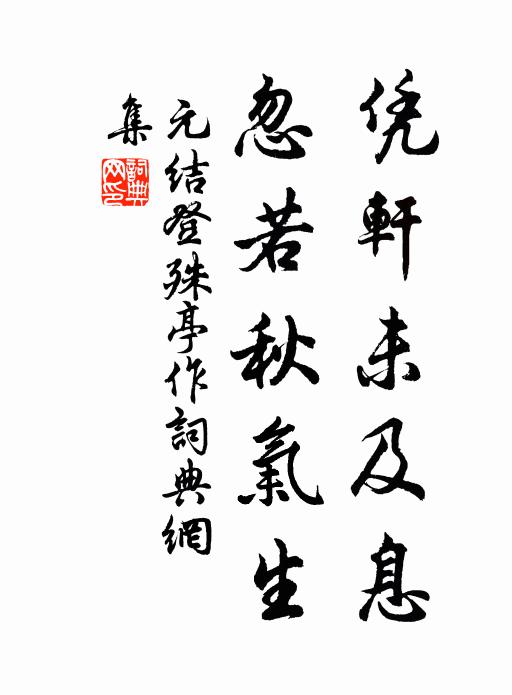 凭軒未及息
忽若秋氣生
元結登殊亭作詞典網
集
詞典
网印